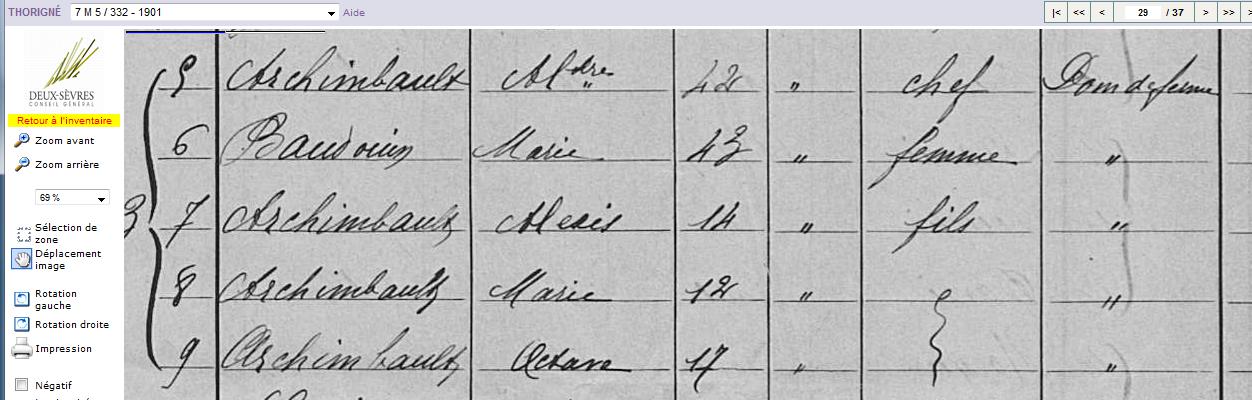 THORIGNÉ 7 M 5 / 332 - 1901 Aide |< << < 29 / 37 > >> >
DEUX-SÈVRES
CONSEIL GÉNÉRAL
Retour à l'inventaire
Zoom avant
Zoom arrière
69 %
Sélection de
zone
Déplacement
image
Rotation
gauche
Rotation droite
Impression
Négatif
5 Archimbault Aldre 42 " chef Dom de ferme
6 Baudouin Marie 43 " femme "
3 7 Archimbault Alexis 14 " fils "
8 Archimbault Marie 12 " "
9 Archimbault Octave 17 " "